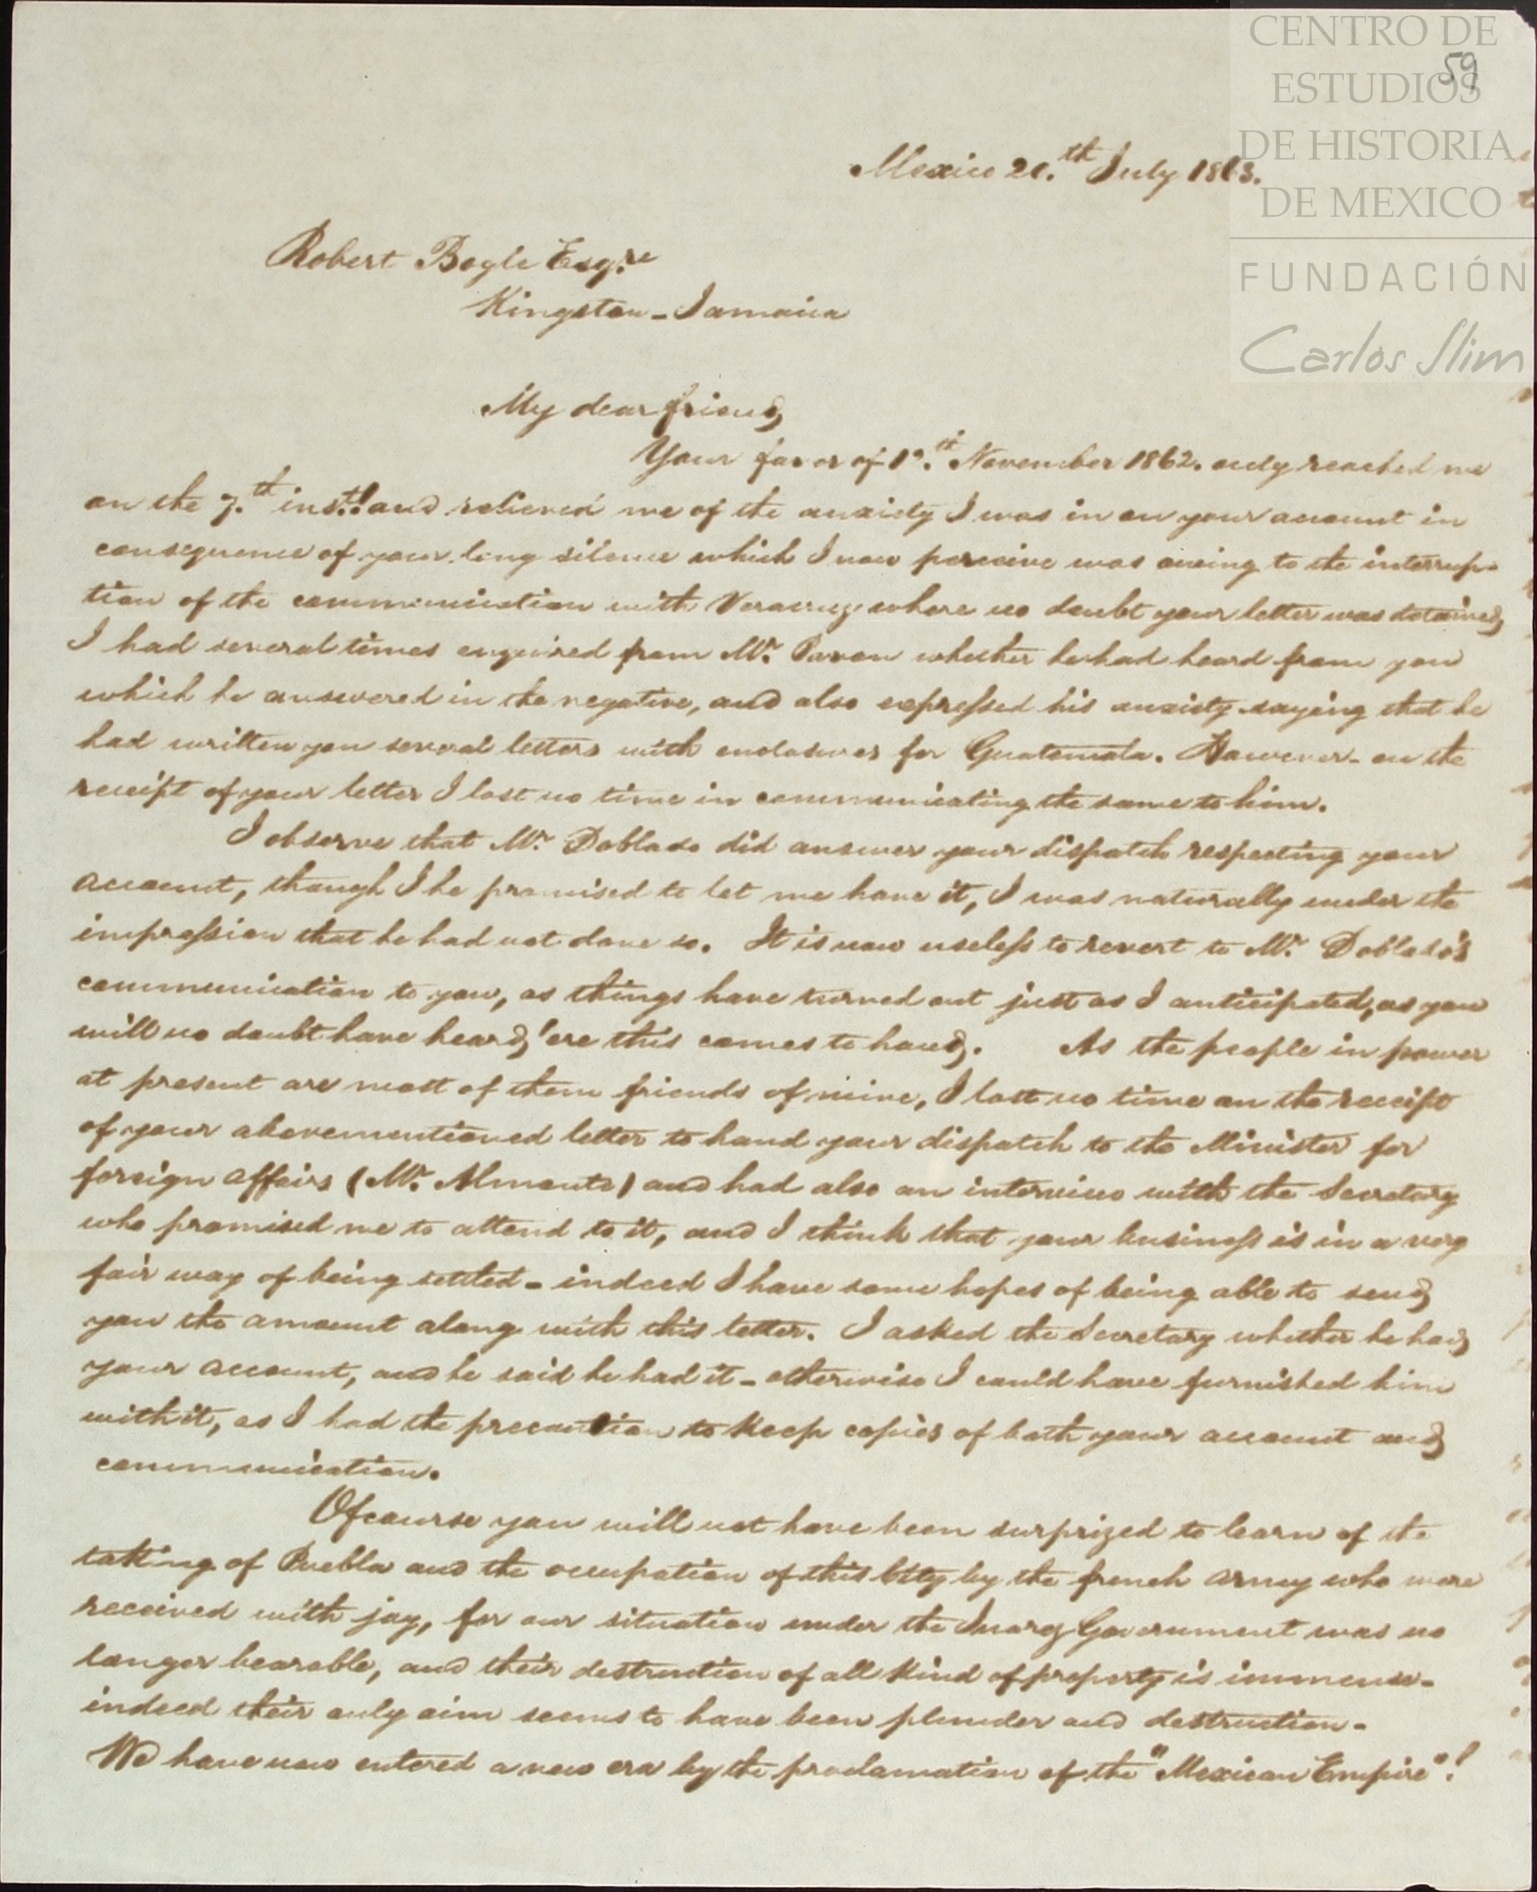 CENTRO DE
ESTUDIOS
DE HISTORIA
DE MEXICO
FUNDACIÓN
Carlos Slim
59
Mexico 20.th July 1863.
Robert Bogle Esqre
Kingston - Jamaica
My dear friend,
Your favor of 19.th November 1862. only reached me
on the 7.th inst.! and relieved me of the anxiety I was in on your account in
consequence of your long silence which I now perceive was owing to the interrup-
tion of the communication with Veracruz where no doubt your letter was detained,
I had several times enquired from Mr. Pavon whether he had heard from you
which he answered in the negative, and also expressed his anxiety saying that he
had written you several letters with enclosures for Guatemala. However - on the
receipt of your letter I lost no time in communicating the same to him.
I observe that Mr. Doblado did answer your dispatch respecting your
account, though I he promised to let me have it, I was naturally under the
impression that he had not done so. It is now useless to revert to Mr. Doblado's
communication to you, as things have turned out just as I anticipated, as you
will no doubt have heard, 'ere this comes to hand. As the people in power
at present are most of them friends of mine, I lost no time on the receipt
of your abovementioned letter to hand your dispatch to the Minister for
foreign affairs (Mr. Almonte) and had also an interview with the Secretary
who promised me to attend to it, and I think that your business is in a very
fair way of being settled - indeed I have some hopes of being able to send
you the amount along with this letter. I asked the Secretary whether he had
your account, and he said he had it - otherwise I could have furnished him
with it, as I had the precaution to keep copies of both your account and
communication.
Of course you will not have been surprized to learn of the
taking of Puebla and the occupation of this City by the french army who were
received with joy, for our situation under the Juarez Government was no
longer bearable, and their destruction of all kind of property is immense -
indeed their only aim seems to have been plunder and destruction -
We have now entered a new era by the proclamation of the "Mexican Empire"!